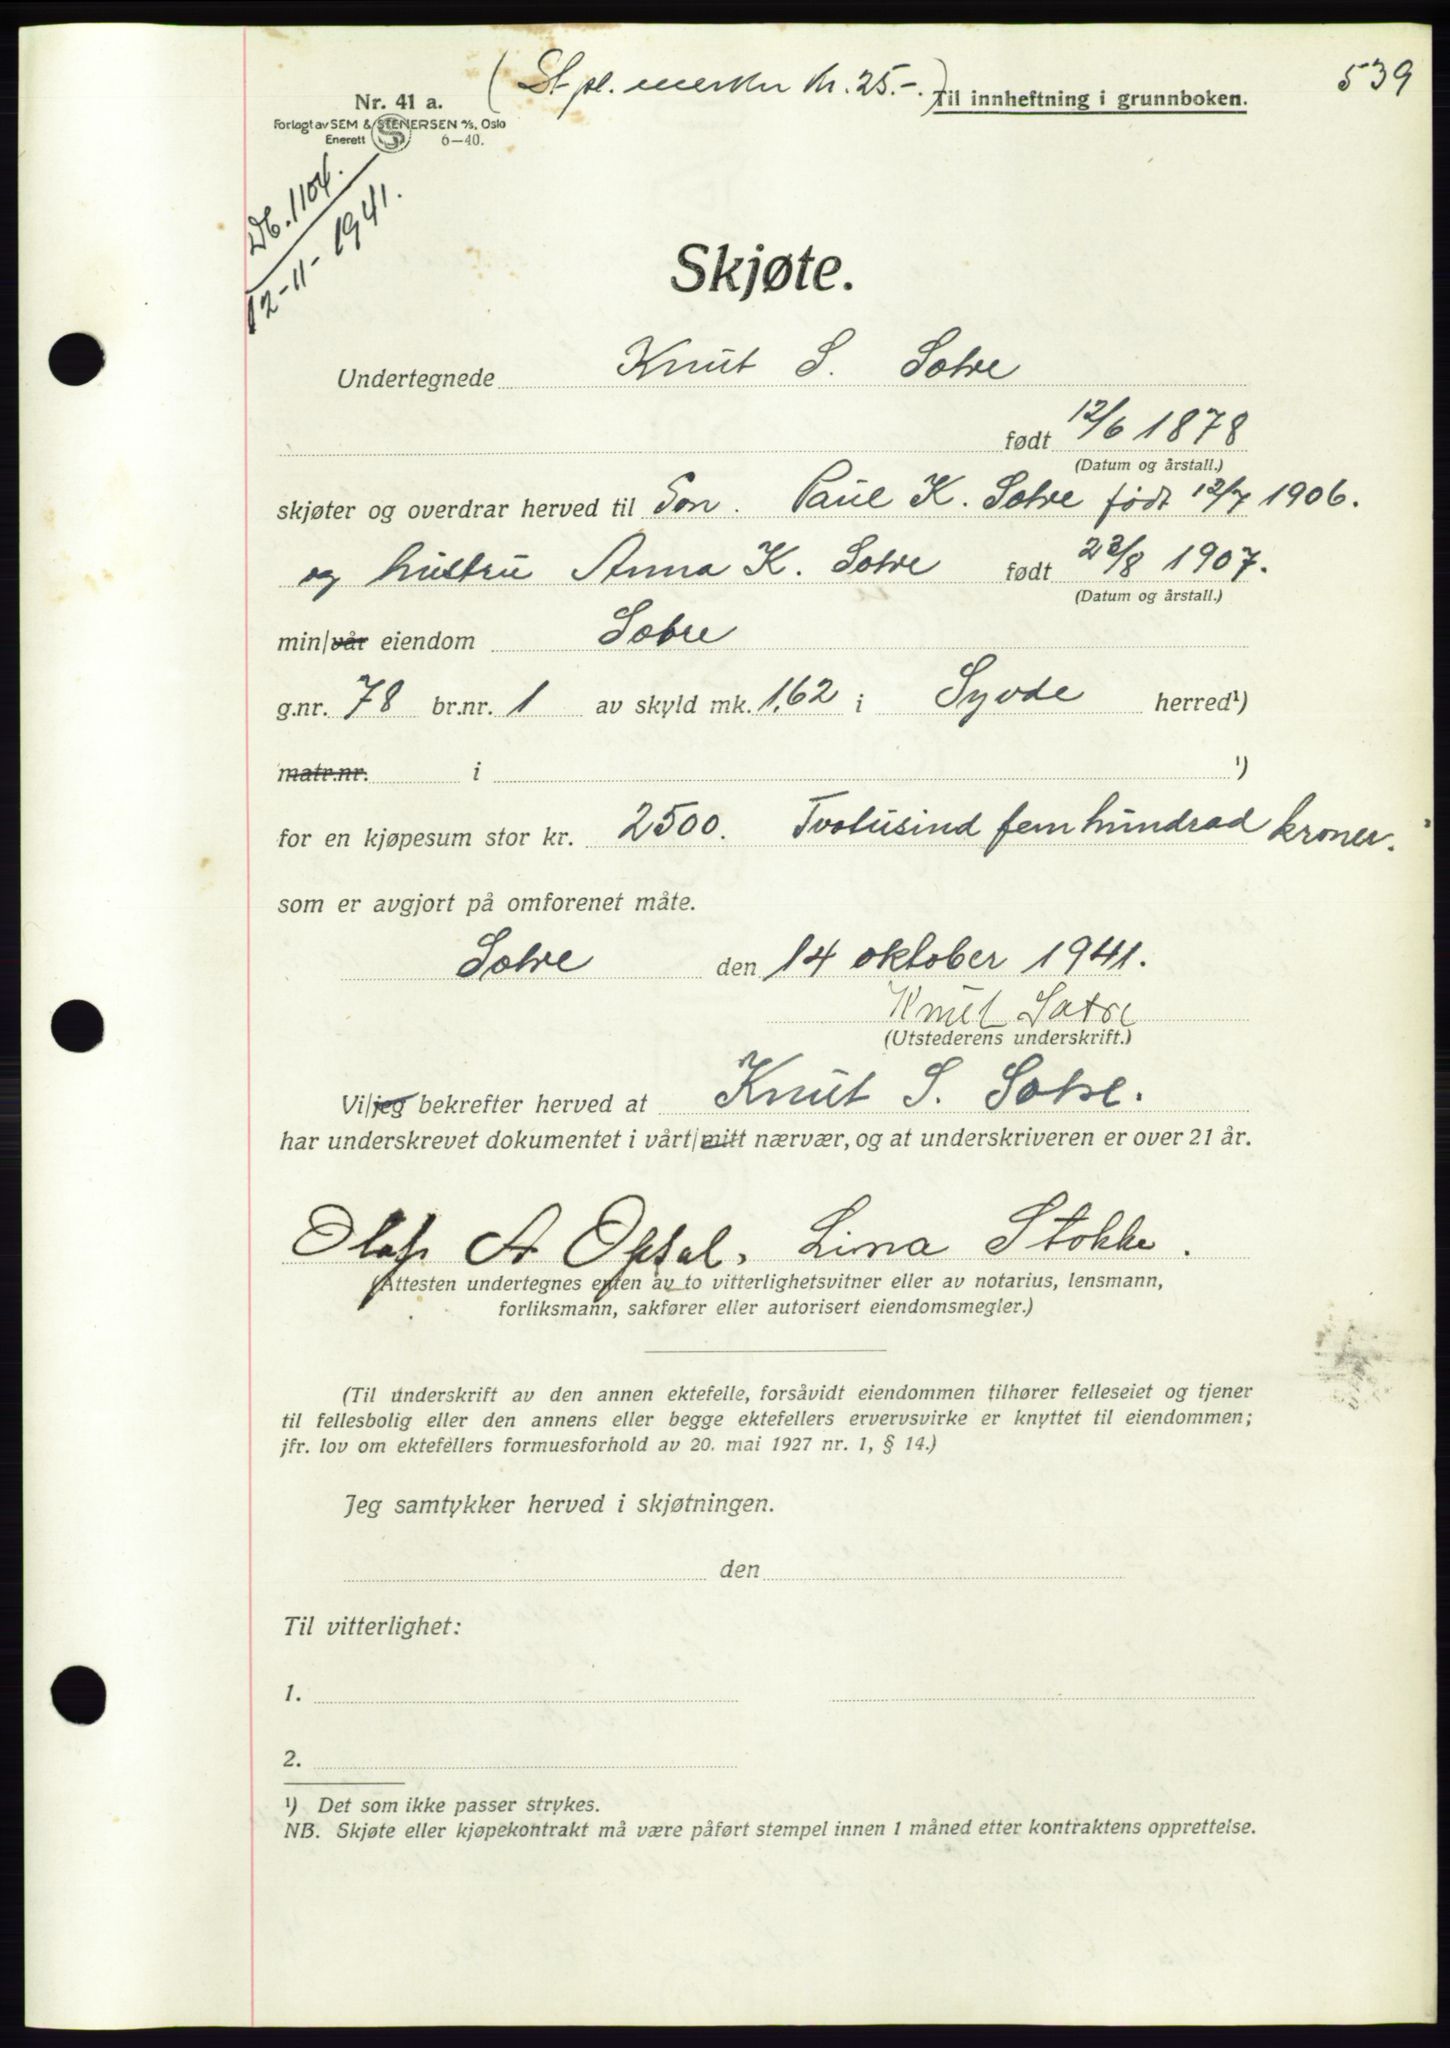 539
(St.pl. merker kr. 25.-.)
Nr. 41 a.
Til innheftning i grunnboken.
Forlagt av SEM & STENERSEN A/S, Oslo
Enerett 6—40.
Db. 1104.
12-11-1941.
Skjøte.
Undertegnede Knut S. Sætre
født 12/6 1878
(Datum og årstall.)
skjøter og overdrar herved til Son. Paul K. Sætre født 12/7 1906.
og hustru Anna K. Sætre født 23/8 1907.
(Datum og årstall.)
min/vår eiendom Sætre
g.nr. 78 br.nr. 1 av skyld mk. 1,62 i Syvde herred¹)
matr.nr. i ¹)
for en kjøpesum stor kr. 2500. Tvotusind femhundrad kroner.
som er avgjort på omforenet måte.
Sætre den 14 oktober 1941.
Knut Sætre
(Utstederens underskrift.)
Vi/jeg bekrefter herved at Knut S. Sætre.
har underskrevet dokumentet i vårt/mitt nærvær, og at underskriveren er over 21 år.
Olaf A Opsal, Lina Stokke.
(Attesten undertegnes enten av to vitterlighetsvitner eller av notarius, lensmann,
forliksmann, sakfører eller autorisert eiendomsmegler.)
(Til underskrift av den annen ektefelle, forsåvidt eiendommen tilhører felleseiet og tjener
til fellesbolig eller den annens eller begge ektefellers ervervsvirke er knyttet til eiendommen;
jfr. lov om ektefellers formuesforhold av 20. mai 1927 nr. 1, § 14.)
Jeg samtykker herved i skjøtningen.
den
Til vitterlighet:
1.
2.
¹) Det som ikke passer strykes.
NB. Skjøte eller kjøpekontrakt må være påført stempel innen 1 måned etter kontraktens opprettelse.